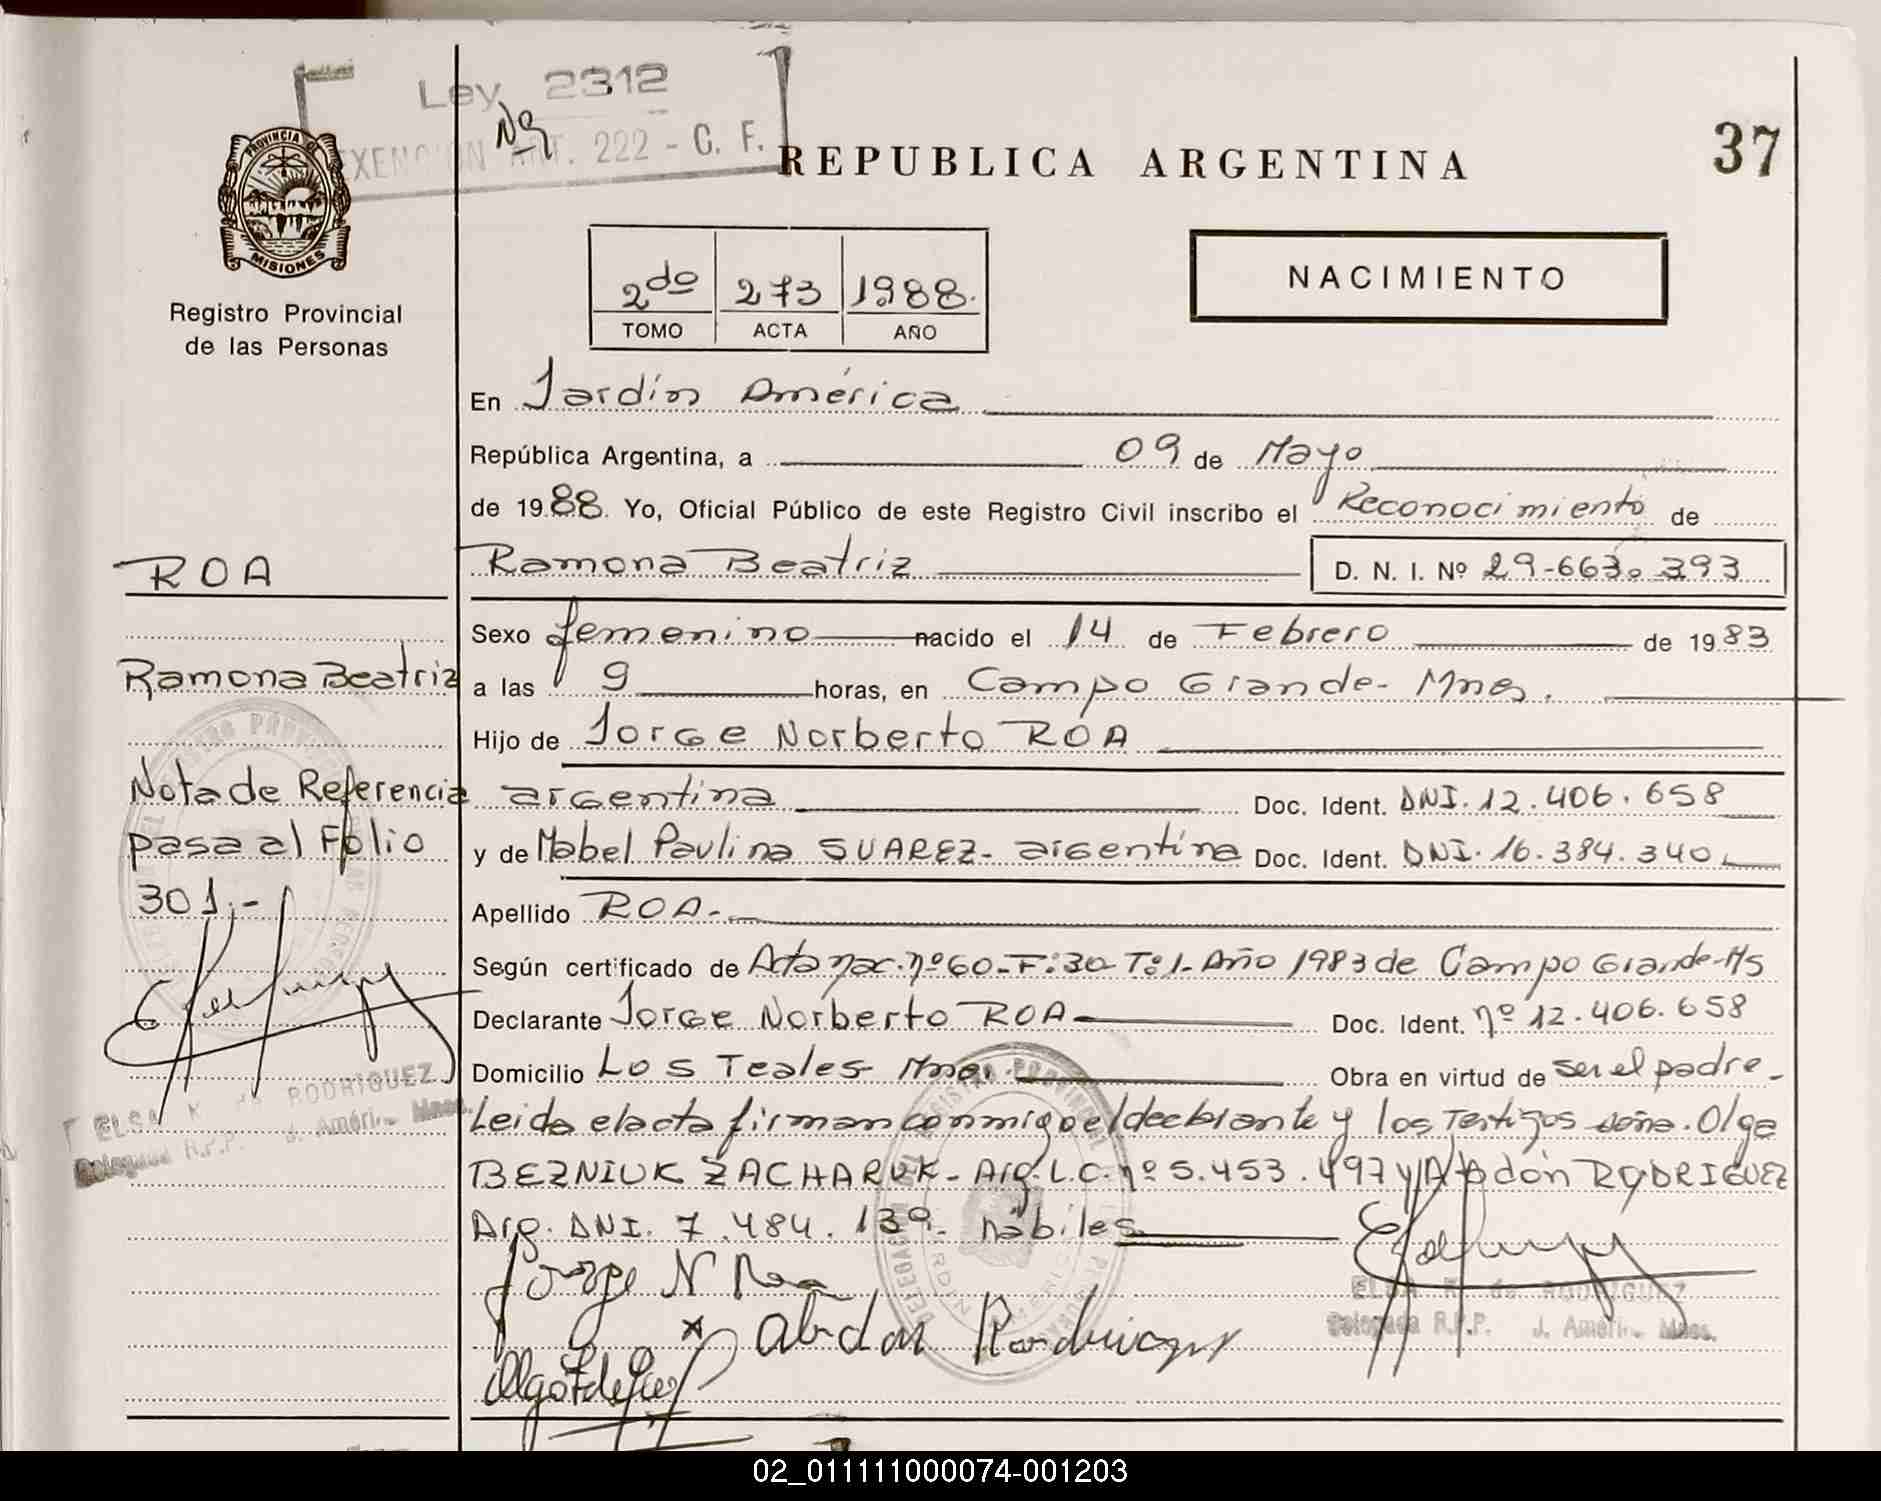 Ley 2312
EXENCION ART. 222 - C. F.
PROVINCIA DE
MISIONES
REPUBLICA ARGENTINA
37
Registro Provincial
de las Personas
2do 273 1988.
TOMO ACTA AÑO
NACIMIENTO
En Jardín América
República Argentina, a 09 de Mayo
de 1988. Yo, Oficial Público de este Registro Civil inscribo el Reconocimiento de
ROA
Ramona Beatriz D. N. I. Nº 29-663.393
Sexo femenino nacido el 14 de Febrero de 1983
Ramona Beatriz
a las 9 horas, en Campo Grande- Mnes.
Hijo de Jorge Norberto ROA
Nota de Referencia
argentina Doc. Ident. DNI. 12.406.658
pasa al Folio
y de Mabel Paulina SUAREZ- argentina Doc. Ident. DNI. 16.384.340
301.-
Apellido ROA.-
Según certificado de Acta nac. nº 60-F:30-Tº1-Año 1983 de Campo Grande-Ms
Declarante Jorge Norberto ROA Doc. Ident. nº 12.406.658
Domicilio Los Teales- Mnes. Obra en virtud de ser el padre-
ELSA K. de RODRIGUEZ
Delegada R.P.P. J. Améri.. Mnes.
Leida el acta firman conmigo el declarante y los Testigos doña. Olga
BEZNIUK ZACHARUK- Arg. L.C. nº 5.453.497 y Abdón RODRIGUEZ
Arg. DNI. 7.484.139. hábiles
Jorge N Roa
ELSA K. de RODRIGUEZ
Delegada R.P.P. J. Améri.. Mnes.
Abdon Rodriguez
02_011111000074-001203